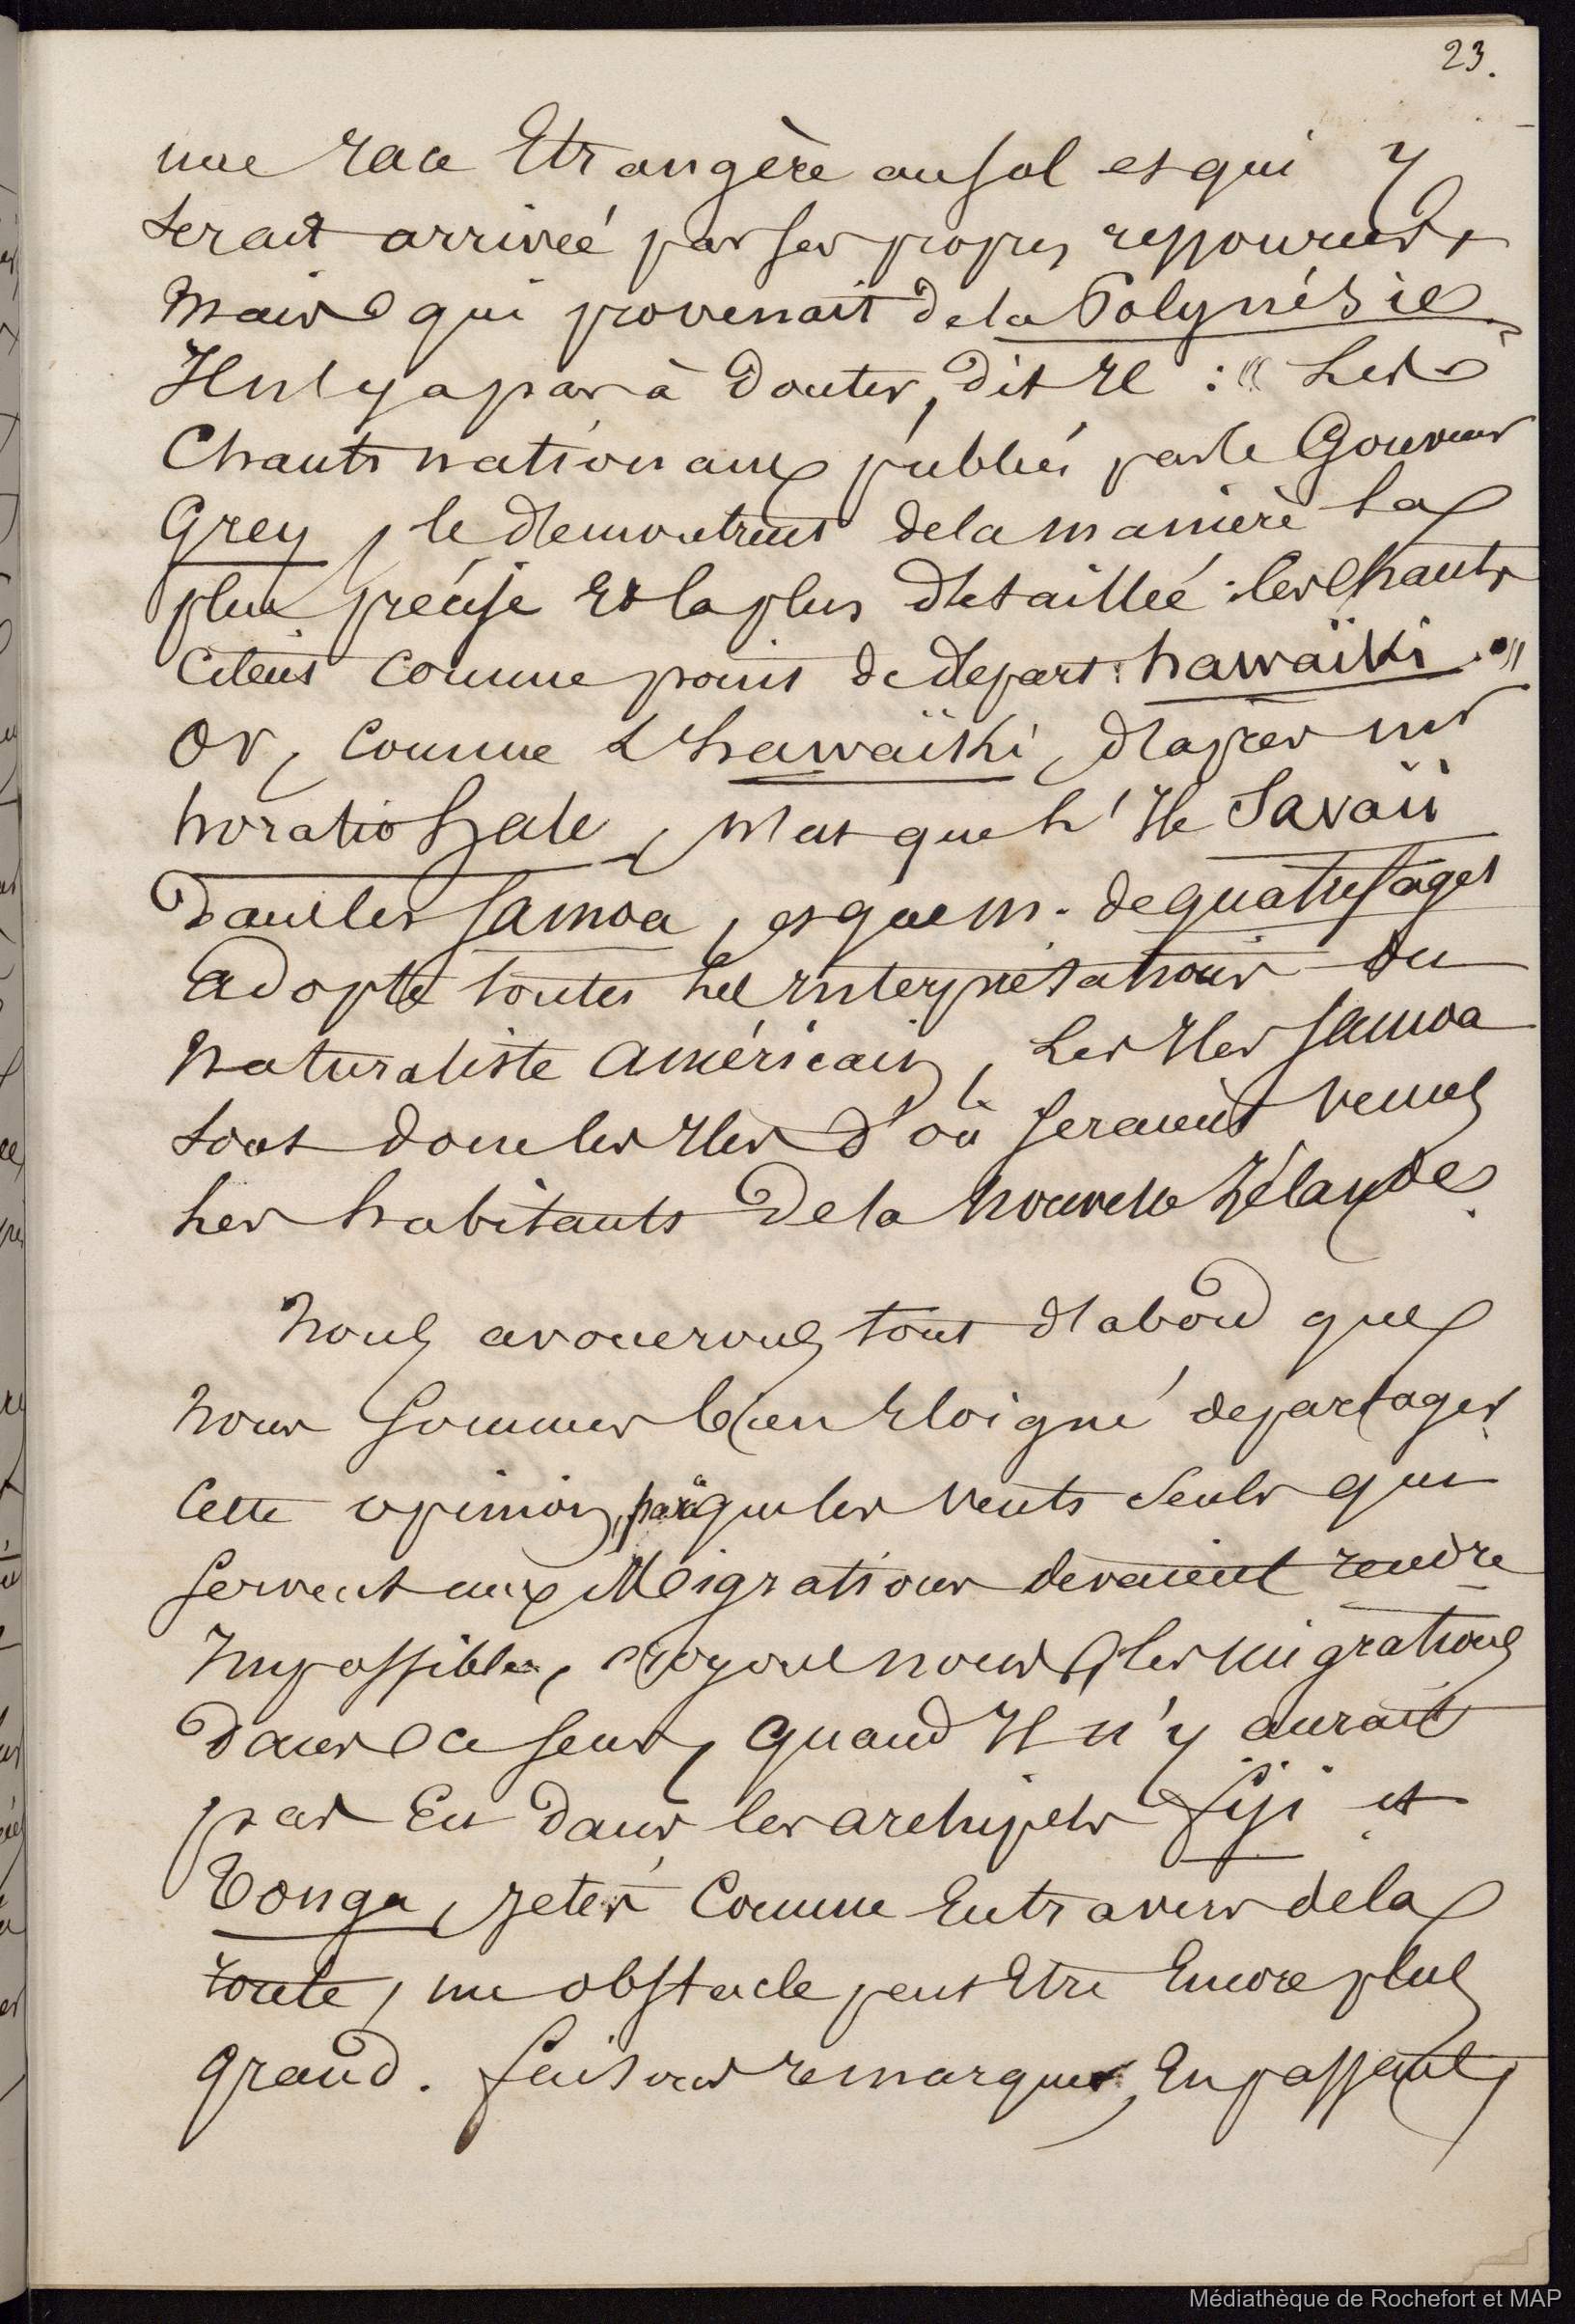 23.
une race Etrangère au sol et qui y
serait arrivée par ses propres ressources,
mais qui provenait de la Polynésie.
Il n'y a pas à Douter, dit il : « Les
Chants nationaux publiés par le Gouverneur
Grey, le demontrent de la manière la
plus précise et la plus détaillée : les chants
citent comme point de depart : hawaïki. »
Or, comme L'hawaïki, d'après mr
horatio hale, n'est que L'Ile Savaii
Dans les Samoa, et que m. de quatrefages
adopte toutes Les interprétations du
naturaliste américain, Les Iles Samoa
sont donc les Iles d'où seraient venus
Les habitants de la Nouvelle Zélande.
Nous avouerons tout d'abord que
nous sommes bien Eloigné de partager
cette opinion, parceque les vents seuls qui
servent aux Migrations devaient rendre
Impossibles, croyons nous, les migrations
dans ce sens, quand Il n'y aurait
pas Eu dans les archipels fiji et
Tonga, jetés comme Entraves de la
route, un obstacle peut Etre Encore plus
grand. faisons remarquer, En passant,
Médiathèque de Rochefort et MAP